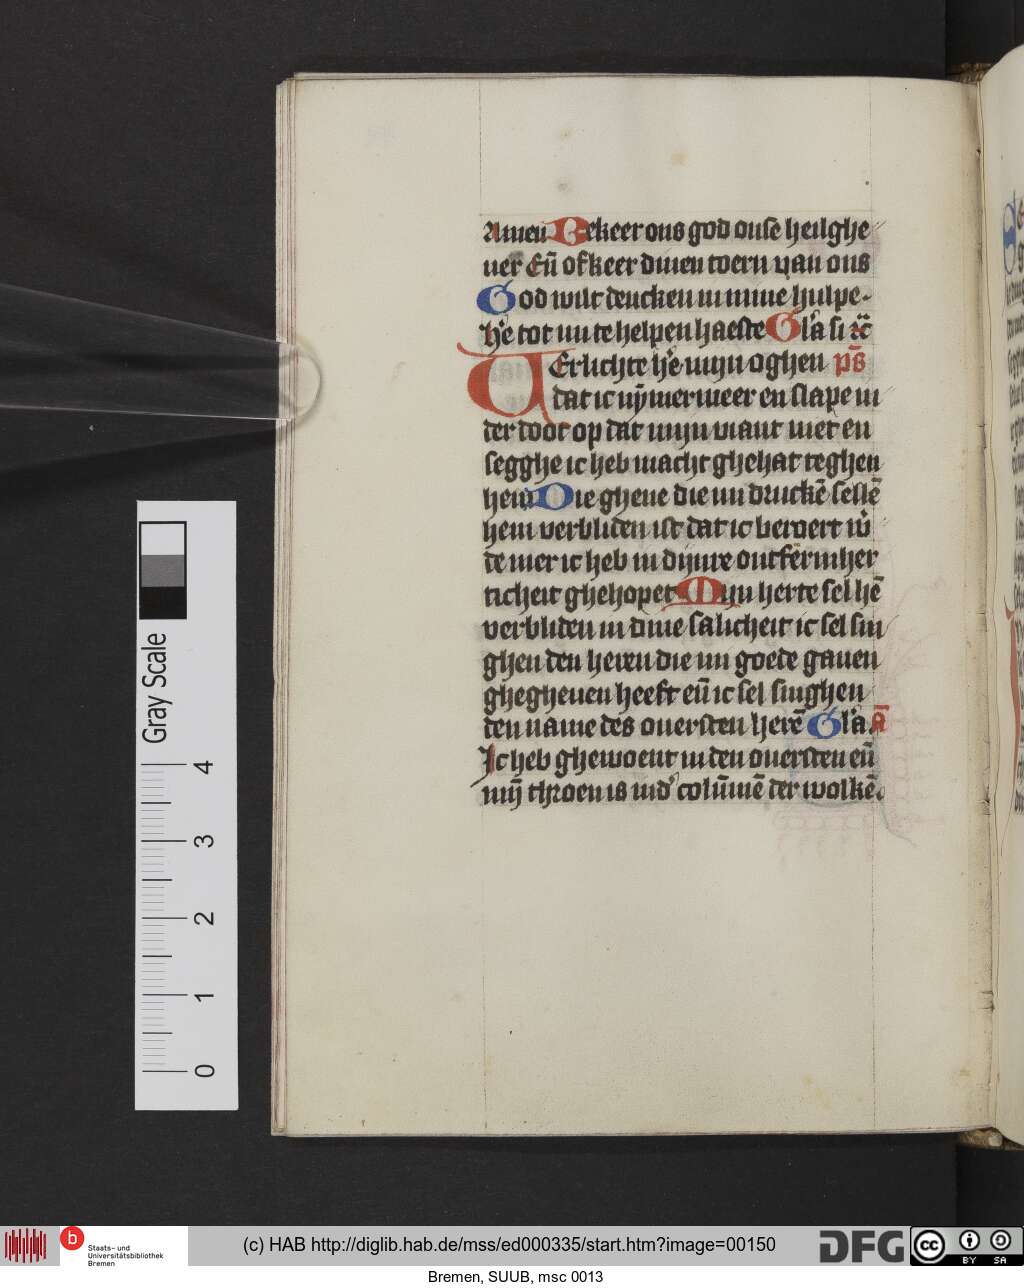 Amen Bekeer ons god onse heilghe
uer Eñ ofkeer dinen toern van ons
God wilt dencken in mine hulpe
he tot mi te helpen haeste Gla si ec
VErlichte he mijn oghen ps
dat ic nȳmermeer en slape in
der doot op dat mijn viant niet en
segghe ic heb macht ghehat teghen
hem Die ghene die mi druckē sellē
hem verbliden ist dat ic beroert w
de mer ic heb in dijnre ontfermher
ticheit ghehopet Mijn herte sel hē
verbliden in dine salicheit ic sel sin
ghen den heren die mi goede gauen
ghegheuen heeft eñ ic sel singhen
den name des ouersten herē Gla a
Ic heb ghewoent in den ouersten eñ
mȳ throen is ind colūmē der wolkē
Gray Scale
4
3
2
1
0
b Staats- und
Universitätsbibliothek
Bremen
(c) HAB http://diglib.hab.de/mss/ed000335/start.htm?image=00150
DFG
cc BY SA
Bremen, SUUB, msc 0013